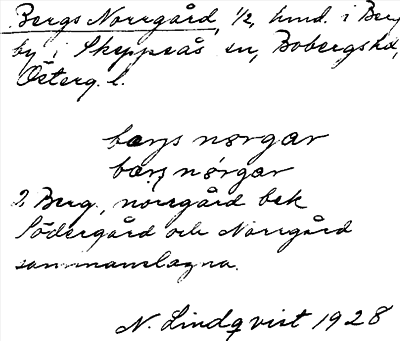 Bergs Norrgård, 1/2, hmd. i Berg
by i Skeppsås sn, Bobergs hd,
Österg. l.
bærjs nørgar
bærs nørgar
2 Berg, norrgård bek
Södergård och Norrgård
sammanslagna.
N. Lindqvist 1928